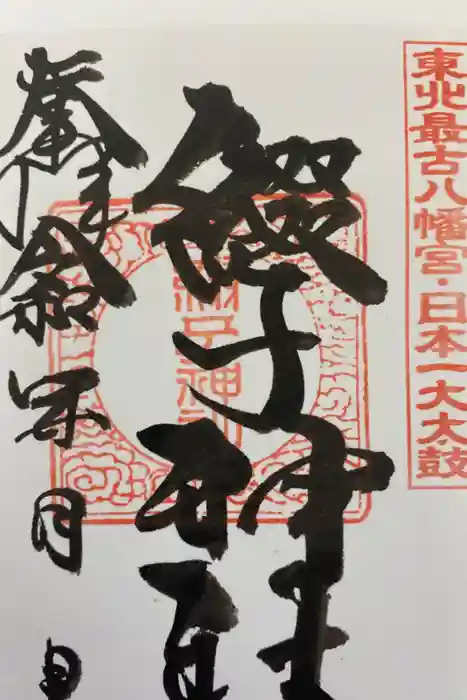 東北最古八幡宮・日本一大太鼓
綴子神社
綴子神社
奉拝令和年月日